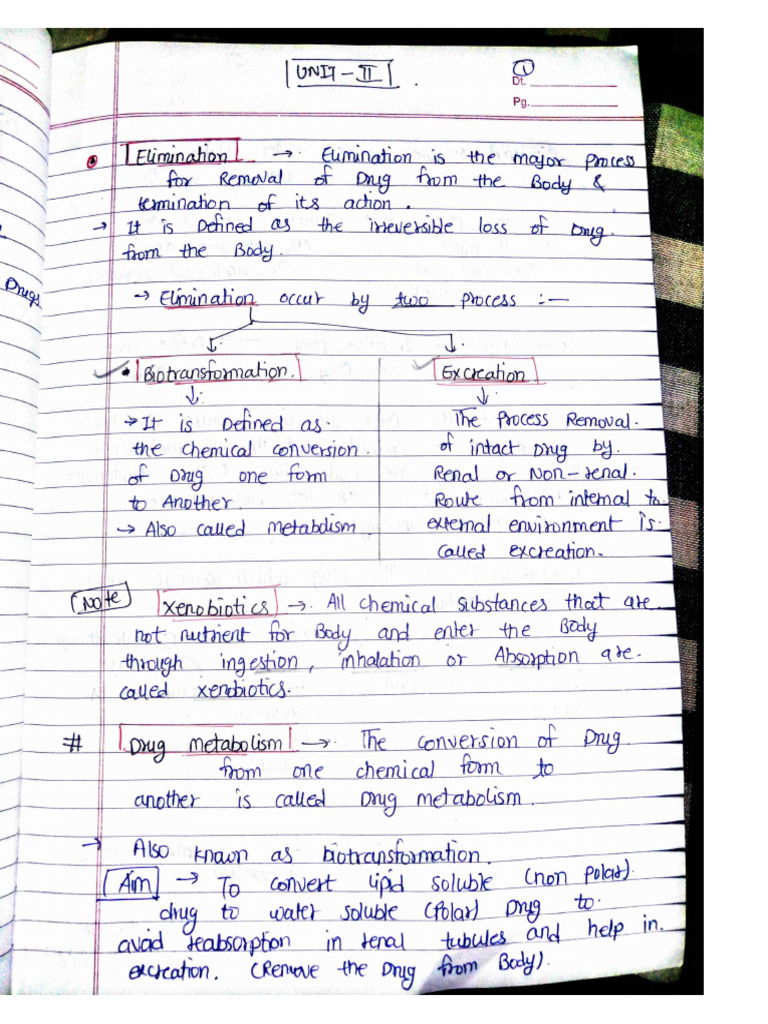 UNIT - II
1
Dt.
Pg.
Elimination → Elimination is the major process
for Removal of Drug from the Body &
termination of its action.
→ It is Defined as the irreversible loss of Drug.
from the Body.
Drugs
→ Elimination occur by two process :—
• Biotransformation.
→ It is Defined as.
the chemical conversion.
of Drug one form
to Another.
→ Also called metabolism
Excreation
The Process Removal.
of intact Drug by.
Renal or Non-renal.
Route from internal to.
external environment is.
called excreation.
Note
Xenobiotics → All chemical substances that are.
not nutrient for Body and enter the Body
through ingestion, inhalation or Absorption are.
called xenobiotics.
# Drug metabolism → The conversion of Drug.
from one chemical form to
another is called Drug metabolism.
→ Also known as biotransformation.
Aim → To convert lipid soluble (non polar).
drug to water soluble (Polar) Drug to.
avoid reabsorption in renal tubules and help in.
excreation. (Remove the Drug from Body).